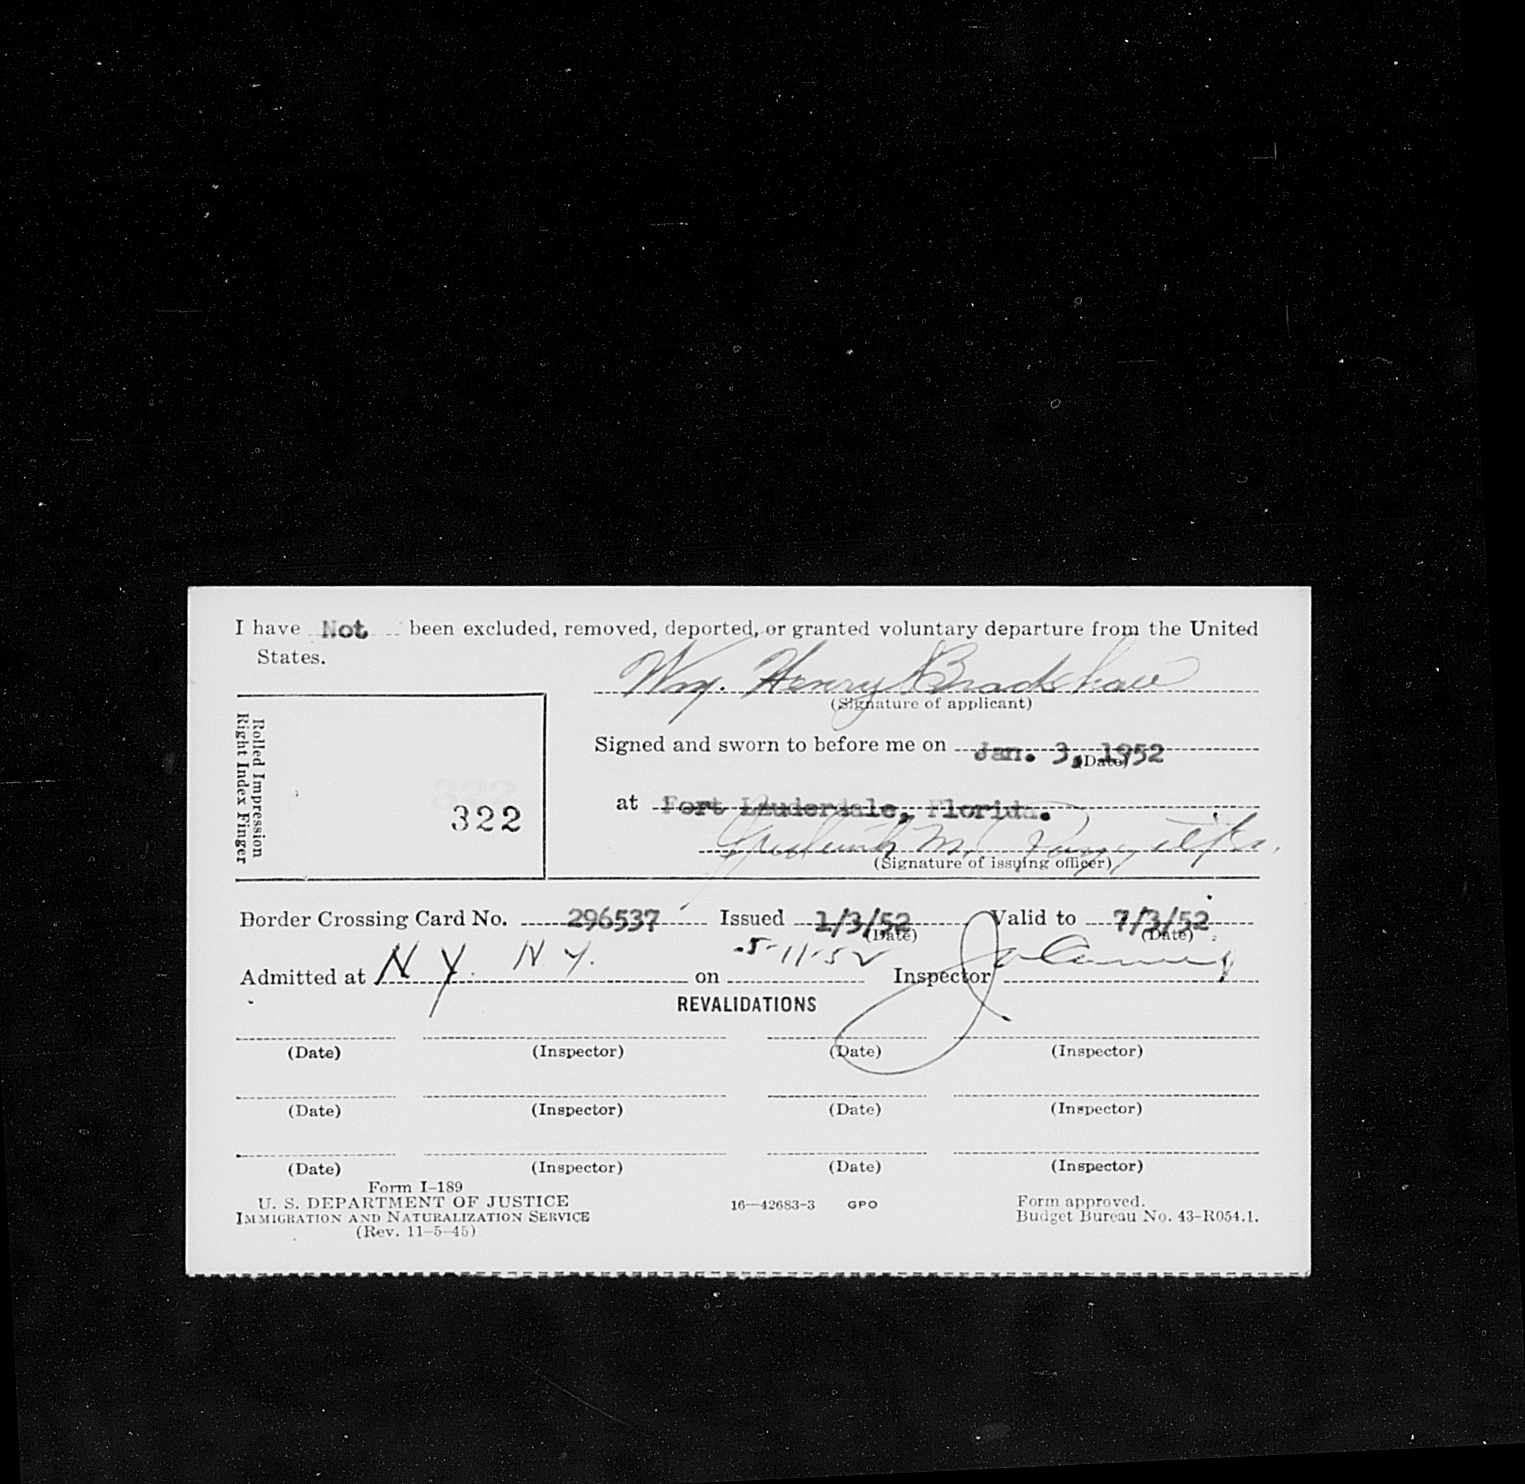 I have Not been excluded, removed, deported, or granted voluntary departure from the United
States.
Wm. Henry Bradshaw
(Signature of applicant)
Rolled Impression
Right Index Finger
322
Signed and sworn to before me on Jan. 3, 1952
(Date)
at Fort Lauderdale, Florida.
(Signature of issuing officer)
Border Crossing Card No. 296537 Issued 1/3/52 Valid to 7/3/52
(Date) (Date)
Admitted at N Y. N Y. on 5-11-52 Inspector
REVALIDATIONS
(Date) (Inspector) (Date) (Inspector)
(Date) (Inspector) (Date) (Inspector)
(Date) (Inspector) (Date) (Inspector)
Form I-189
U. S. DEPARTMENT OF JUSTICE 16—42683-3 GPO Form approved.
IMMIGRATION AND NATURALIZATION SERVICE Budget Bureau No. 43-R054.1.
(Rev. 11-5-45)